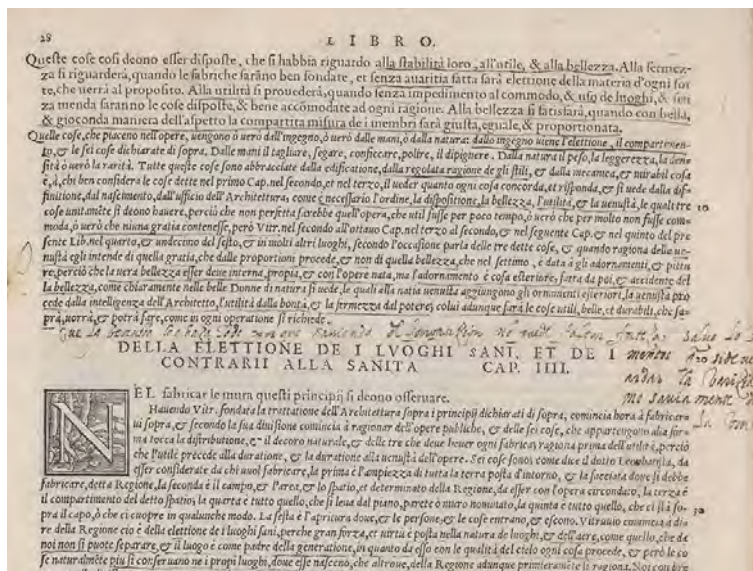 28
LIBRO.
Queste cose cosi deono esser disposte, che si habbia riguardo alla stabilità loro, all'utile, & alla bellezza. Alla fermez-
za si riguarderà, quando le fabriche sarãno ben fondate, et senza avaritia fatta sarà elettione della materia d'ogni sor
te, che uerrà al proposito. Alla utilità si prouederà, quando senza impedimento al commodo, & uso de luoghi, & sen
za menda saranno le cose disposte, & bene accõmodate ad ogni ragione. Alla bellezza si satisfarà, quando con bella,
& gioconda maniera dell'aspetto la compartita misura de i membri sarà giusta, eguale, & proportionata.
Quelle cose, che piaceno nell'opere, uengono ò uerò dall'ingegno, ò uerò dalle mani, ò dalla natura: dallo ingegno uiene l'elettione, il compartimen-
to, & le sei cose dichiarate di sopra. Dalle mani il tagliare, segare, conficcare, poltre, il dipignere. Dalla natura il peso, la leggerezza, la den-
sità ò uerò la rarità. Tutte queste cose sono abbracciate dalla edificatione, dalla regolata ragione de gli stili, & dalla mecanica, & mirabil cosa
è, à chi ben considera le cose dette nel primo Cap. nel secondo, et nel terzo, il ueder quanto ogni cosa concorda, et risponda, & si uede dalla dif-
finitione, dal nascimento, dall'ufficio dell'Architettura, come è necessario l'ordine, la dispositione, la bellezza, l'utilità, & la uenustà, le quai tre 10
cose unitamẽte si deono hauere, perciò che non perfetta sarebbe quell'opera, che util fusse per poco tempo, ò uerò che per molto non fusse com-
moda, ò uerò che niuna gratia contenesse, però Vitr. nel secondo all'ottauo Cap. nel terzo al secondo, & nel seguente Cap. & nel quinto del pre
sente Lib. nel quarto, & undecimo del sesto, & in molti altri luoghi, secondo l'occasione parla delle tre dette cose, & quando ragiona della ue-
nustà egli intende di quella gratia, che dalle proportioni procede, & non di quella bellezza, che nel settimo, è data à gli adornamenti, & pittu
re, perciò che la uera bellezza esser deue interna, propia, & con l'opere nata, ma l'adornamento è cosa esteriore, fatta da poi, & accidente del
la bellezza, come chiaramente nelle belle Donne di natura si uede, le quali alla natia uenustà aggiungono gli ornamenti esteriori, la uenustà pro
cede dalla intelligenza dell'Architetto, l'utilità dalla bontà, & la fermezza dal potere; colui adunque farà le cose utili, belle, et durabili, che sa-
prà, uorrà, & potrà fare, come in ogni operatione si richiede.
DELLA ELETTIONE DE I LVOGHI SANI, ET DE I
CONTRARII ALLA SANITA CAP. IIII.
NEL fabricar le mura questi principij si deono osseruare.
Hauendo Vitr. fondata la trattatione dell'Architettura sopra i principij dichiarati di sopra, comincia hora à fabricarui
ui sopra, & secondo la sua diuisione comincia à ragionar dell'opere publiche, & delle sei cose, che appartengono alla for
ma tocca la distributione, & il decoro naturale, & delle tre che deue hauer ogni fabrica, ragiona prima dell'utilità, perciò
che l'utile precede alla duratione, & la duratione alla uenustà dell'opere. Sei cose sono, come dice il dotto Leonbatista, da
esser considerate da chi uuol fabricare, la prima è l'ampiezza di tutta la terra posta d'intorno, & la facciata doue si debbe
fabricare, detta Regione, la seconda è il campo, & l'area, & lo spatio, et determinato della Regione, da esser con l'opera circondato, la terza è
il compartimento del detto spatio; la quarta è tutto quello, che si leua dal piano, parete ò muro nominato, la quinta è tutto quello, che ci stà so-
pra il capo, ò che ci cuopre in qualunche modo. La sesta è l'apritura doue, & le persone, & le cose entrano, & escono. Vitruuio comincia à di 30
re della Regione ciò è della elettione de i luoghi sani, perche gran forza, et uirtù è posta nella natura de luoghi, & dell'aere, come quello, che da
noi non si puote separare, & il luogo è come padre della generatione, in quanto da esso con le qualità del cielo ogni cosa procede, & però le co
se naturalmẽte più si conseruano ne i propi luoghi, doue esse nasceno, che altroue, della Regione adunque primieramẽte si ragiona.